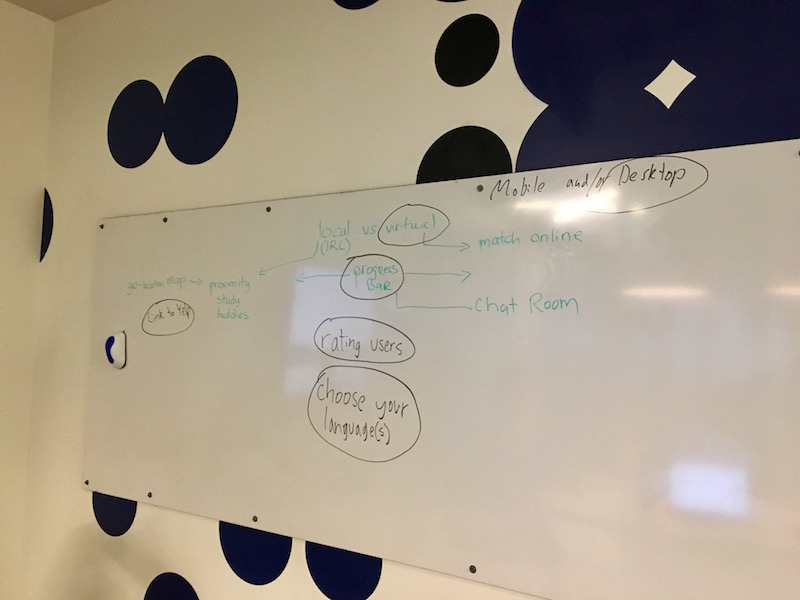 Mobile and/or Desktop
local vs virtual
(IRL)
match online
progress
Bar
geo-location map
proximity
study
buddies
Link to Yelp
Chat Room
rating users
Choose your
language(s)